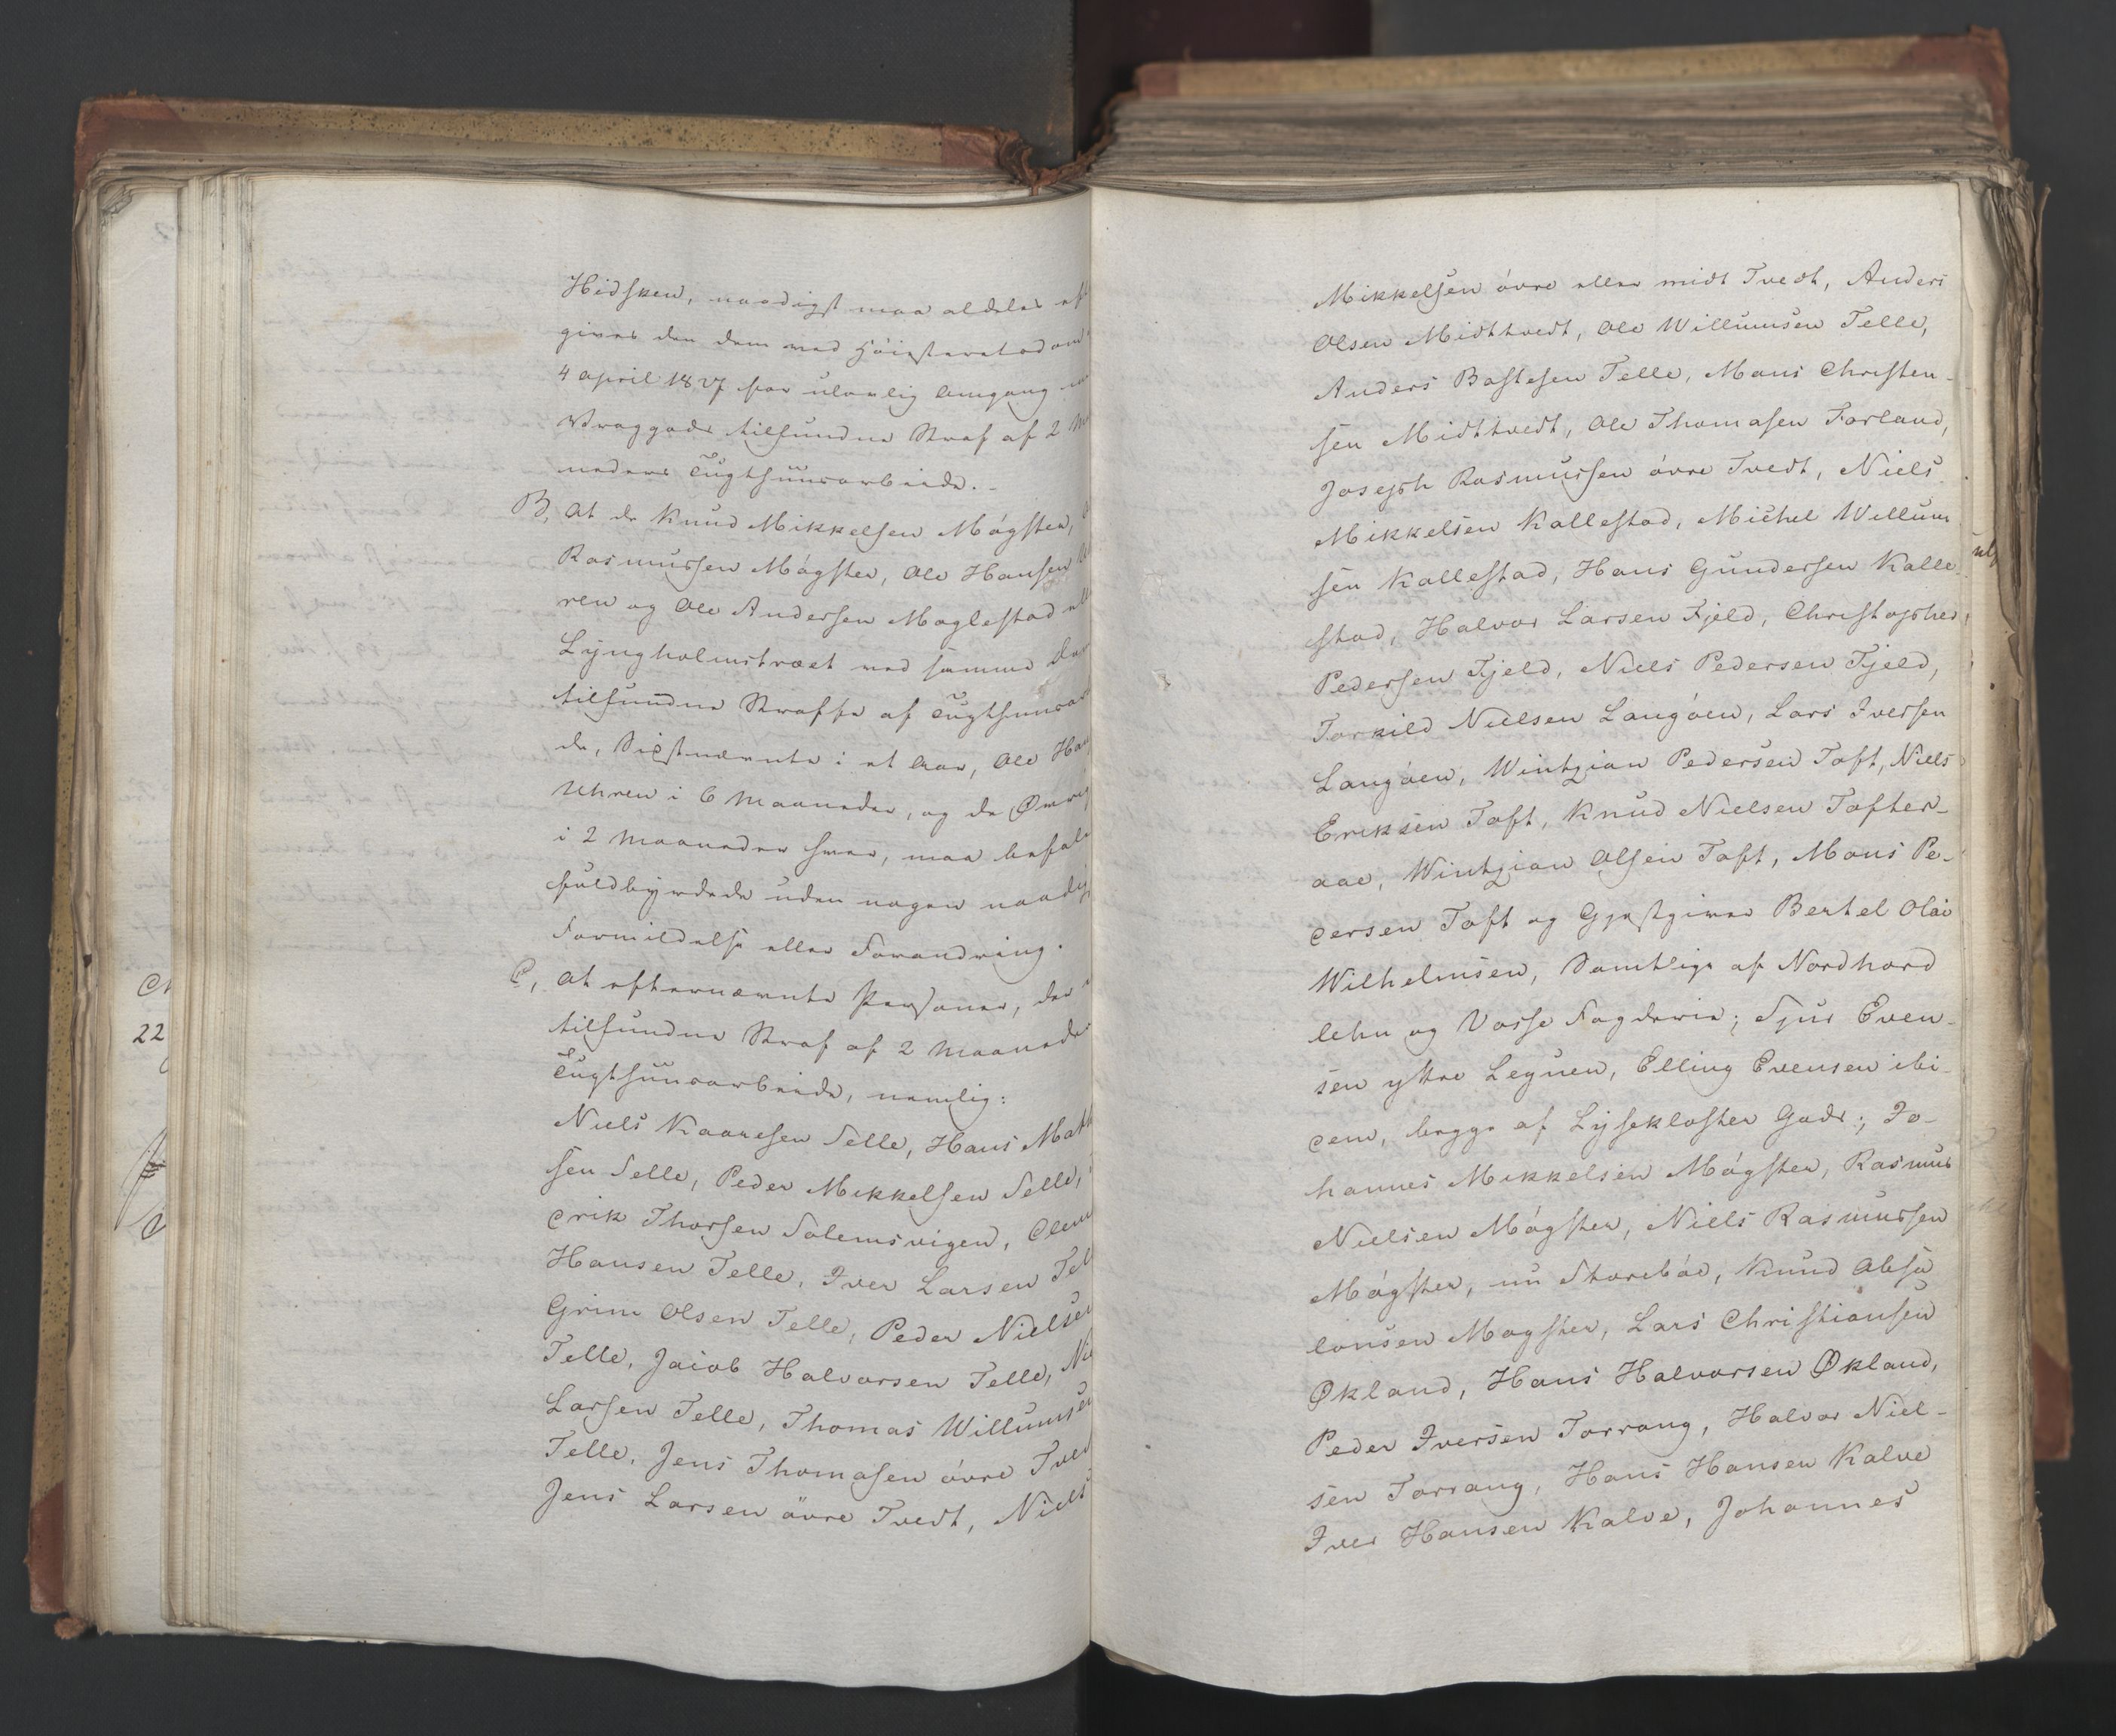 Hidsken, naadigst maa aldeles ef
gives den dem ved Høiesteretsdom
4 april 1827 for ulovlig Omgang
Vraggods tilfundne Straf af 2 M
neders Tugthuusarbeide. -
B, At de Knud Mikkelsen Møgster,
Rasmussen Møgster, Ole Hansen
ren og Ole Andersen Maglestad ell
Lyngholmstræet ved samme Dom
tilfundne Straffe af Tugthuusar
de, Sidstnævnte i et Aar, Ole Han
Uhren i 6 Maaneder, og de Øvrig
i 2 Maaneder hver, maa befale
fuldbyrdede uden nogen naadig
Formildelse eller Forandring.
C, At efternævnte Personer, der
tilfundne Straf af 2 Maaneder
Tugthuusarbeide, nemlig:
Niels Kaaresen Selle, Hans Math
sen Selle, Peder Mikkelsen Selle,
Erik Thorsen Solemsvigen, Clem
Hansen Telle, Iver Larsen Tel
Grim Olsen Telle, Peder Nielsen
Telle, Jacob Halvorsen Telle, Nie
Larsen Telle, Thomas Willumsen
Telle, Jens Thomasen øvre Tved
Jens Larsen øvre Tvedt, Niels
Mikkelsen øvre eller midt Tvedt, Anders
Olsen Midttvedt, Ole Willumsen Telle,
Anders Bastesen Telle, Mons Christen-
sen Midttvedt, Ole Thomasen Forland,
Joseph Rasmussen øvre Tvedt, Niels
Mikkelsen Kallestad, Michel Willum
sen Kallestad, Hans Gundersen Kalle
stad, Halvor Larsen Fjeld, Christopher
Pedersen Fjeld, Niels Pedersen Fjeld,
Torkild Nielsen Langøen, Lars Iversen
Langøen, Wintzian Pedersen Toft, Niels
Eriksen Toft, Knud Nielsen Tofter-
aae, Wintzian Olsen Toft, Mons Pe-
dersen Toft og Gjestgiver Bertel Olai
Wilhelmsen, Samtlige af Nordhord
lehn og Vosse Fogderie; Sjur Even-
sen yttre Legnen, Elling Evensen ibi-
dem, begge af Lysekloster Gods; Jo-
hannes Mikkelsen Møgster, Rasmus
Nielsen Møgster, Niels Rasmussen
Møgster, nu Storebøe, Knud Absa
lonsen Møgster, Lars Christiansen
Økland, Hans Halvorsen Økland,
Peder Iversen Torrang, Halvor Niel-
sen Torrang, Hans Hansen Kalve
Iver Hansen Kalve, Johannes
22